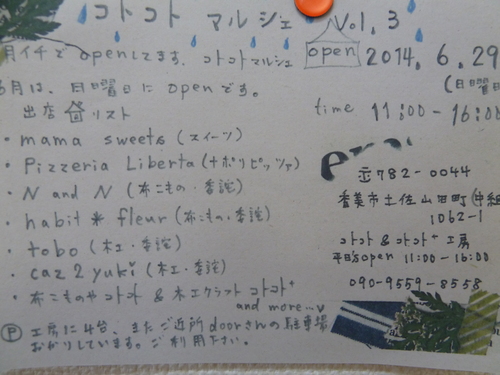 コトコト マルシェ Vol.3
月イチで openしてます、コトコトマルシェ
open 2014.6.29
(日曜日
6月は、日曜日に openです。
time 11:00-16:00
出店 リスト
・mama sweets (スイーツ)
・Pizzeria Liberta (ナポリピッツァ)
・N and N (布こもの・委託)
・habit * fleur (布こもの・委託)
・tobo (木工・委託)
・caz 2 yuki (木工・委託)
・布こものやコトコト & 木工クラフト コトコト⁺
and more...
Ⓟ 工房に4台、またご近所doorさんの駐車場
おかりしています。ご利用下さい。
〒782-0044
香美市土佐山田町
1062-1
コトコト & コトコト⁺ 工房
平日open 11:00-16:00
090-9559-8558